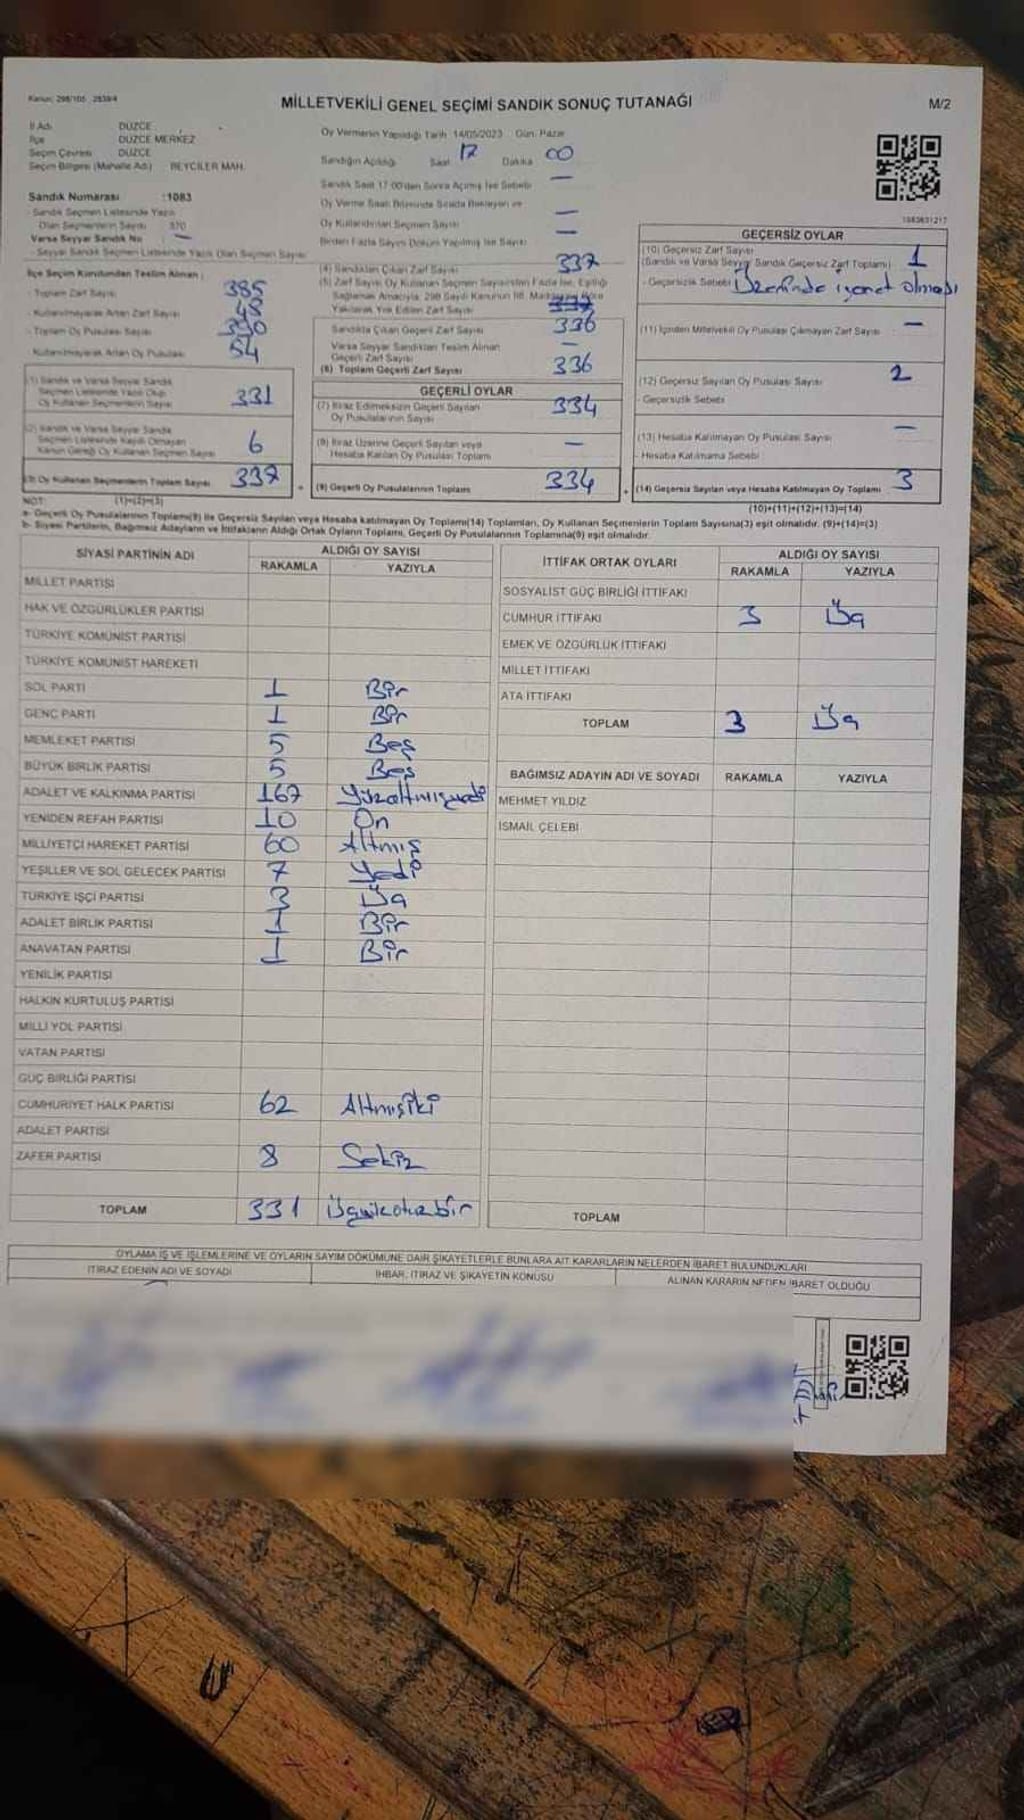 Kanun: 298/105 2839/4
MİLLETVEKİLİ GENEL SEÇİMİ SANDIK SONUÇ TUTANAĞI
M/2
İl Adı DÜZCE
İlçe DÜZCE MERKEZ
Seçim Çevresi DÜZCE
Seçim Bölgesi (Mahalle Adı) BEYCİLER MAH.
Oy Vermenin Yapıldığı Tarih 14/05/2023 Gün: Pazar
Sandığın Açıldığı Saat 17 Dakika 00
Sandık Saat 17:00'den Sonra Açılmış İse Sebebi —
Oy Verme Saati Bitiminde Sırada Bekleyen ve
Oy Kullandırılan Seçmen Sayısı —
Birden Fazla Sayım Döküm Yapılmış İse Sayısı —
Sandık Numarası :1083
- Sandık Seçmen Listesinde Yazılı
Olan Seçmenlerin Sayısı 370
Varsa Seyyar Sandık No —
- Seyyar Sandık Seçmen Listesinde Yazılı Olan Seçmen Sayısı
İlçe Seçim Kurulundan Teslim Alınan ;
- Toplam Zarf Sayısı 385
- Kullanılmayarak Artan Zarf Sayısı 48
- Toplam Oy Pusulası Sayısı
Kullanılmayarak Artan Oy Pusulası 54
(1) Sandık ve Varsa Seyyar Sandık
Seçmen Listesinde Yazılı Olup
Oy Kullanan Seçmenlerin Sayısı 331
(2) Sandık ve Varsa Seyyar Sandık
Seçmen Listesinde Kaydı Olmayan
Kanun Gereği Oy Kullanan Seçmen Sayısı 6
(3) Oy Kullanan Seçmenlerin Toplam Sayısı 337
(4) Sandıktan Çıkan Zarf Sayısı 337
(5) Zarf Sayısı Oy Kullanan Seçmen Sayısından Fazla İse, Eşitliği
Sağlamak Amacıyla, 298 Sayılı Kanunun 98. Maddesine Göre
Yakılarak Yok Edilen Zarf Sayısı
Sandıkta Çıkan Geçerli Zarf Sayısı 336
Varsa Seyyar Sandıktan Teslim Alınan
Geçerli Zarf Sayısı —
(6) Toplam Geçerli Zarf Sayısı 336
GEÇERLİ OYLAR
(7) İtiraz Edilmeksizin Geçerli Sayılan
Oy Pusulalarının Sayısı 334
(8) İtiraz Üzerine Geçerli Sayılan veya
Hesaba Katılan Oy Pusulası Toplamı —
(9) Geçerli Oy Pusulalarının Toplamı 334
1083631217
GEÇERSİZ OYLAR
(10) Geçersiz Zarf Sayısı 1
(Sandık ve Varsa Seyyar Sandık Geçersiz Zarf Toplamı)
- Geçersizlik Sebebi Üzerinde işaret olması
(11) İçinden Milletvekili Oy Pusulası Çıkmayan Zarf Sayısı —
(12) Geçersiz Sayılan Oy Pusulası Sayısı 2
- Geçersizlik Sebebi
(13) Hesaba Katılmayan Oy Pusulası Sayısı —
- Hesaba Katılmama Sebebi
(14) Geçersiz Sayılan veya Hesaba Katılmayan Oy Toplamı 3
NOT: (1)+(2)=(3)
(10)+(11)+(12)+(13)=(14)
a- Geçerli Oy Pusulaları Toplamı(9) ile Geçersiz Sayılan veya Hesaba katılmayan Oy Toplamı(14) Toplamları, Oy Kullanan Seçmenlerin Toplam Sayısına(3) eşit olmalıdır. (9)+(14)=(3)
b- Siyasi Partilerin, Bağımsız Adayların ve İttifakların Aldığı Ortak Oyların Toplamı, Geçerli Oy Pusulalarının Toplamına(9) eşit olmalıdır.
SİYASİ PARTİNİN ADI ALDIĞI OY SAYISI
RAKAMLA YAZIYLA
MİLLET PARTİSİ
HAK VE ÖZGÜRLÜKLER PARTİSİ
TÜRKİYE KOMÜNİST PARTİSİ
TÜRKİYE KOMÜNİST HAREKETİ
SOL PARTİ 1 Bir
GENÇ PARTİ 1 Bir
MEMLEKET PARTİSİ 5 Beş
BÜYÜK BİRLİK PARTİSİ 5 Beş
ADALET VE KALKINMA PARTİSİ 167 Yüzaltmışyedi
YENİDEN REFAH PARTİSİ 10 On
MİLLİYETÇİ HAREKET PARTİSİ 60 Altmış
YEŞİLLER VE SOL GELECEK PARTİSİ 7 Yedi
TÜRKİYE İŞÇİ PARTİSİ 3 Üç
ADALET BİRLİK PARTİSİ 1 Bir
ANAVATAN PARTİSİ 1 Bir
YENİLİK PARTİSİ
HALKIN KURTULUŞ PARTİSİ
MİLLİ YOL PARTİSİ
VATAN PARTİSİ
GÜÇ BİRLİĞİ PARTİSİ
CUMHURİYET HALK PARTİSİ 62 Altmışiki
ADALET PARTİSİ
ZAFER PARTİSİ 8 Sekiz
TOPLAM 331 Üçyüzotuzbir
İTTİFAK ORTAK OYLARI ALDIĞI OY SAYISI
RAKAMLA YAZIYLA
SOSYALİST GÜÇ BİRLİĞİ İTTİFAKI
CUMHUR İTTİFAKI 3 Üç
EMEK VE ÖZGÜRLÜK İTTİFAKI
MİLLET İTTİFAKI
ATA İTTİFAKI
TOPLAM 3 Üç
BAĞIMSIZ ADAYIN ADI VE SOYADI RAKAMLA YAZIYLA
MEHMET YILDIZ
İSMAİL ÇELEBİ
TOPLAM
OYLAMA İŞ VE İŞLEMLERİNE VE OYLARIN SAYIM DÖKÜMÜNE DAİR ŞİKAYETLERLE BUNLARA AİT KARARLARIN NELERDEN İBARET BULUNDUKLARI
İTİRAZ EDENİN ADI VE SOYADI İHBAR, İTİRAZ VE ŞİKAYETİN KONUSU ALINAN KARARIN NEDEN İBARET OLDUĞU